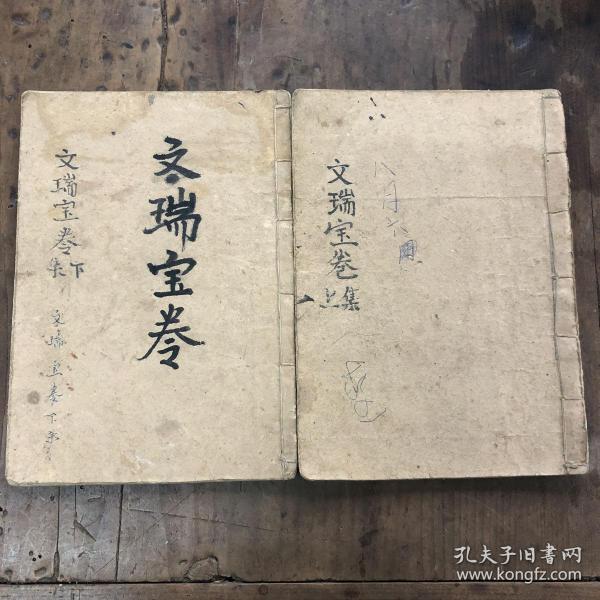 文瑞宝卷
文瑞宝卷
下集
文瑞宝卷下集
文瑞宝卷
上集
八月六
孔夫子旧书网
www.kongfz.com